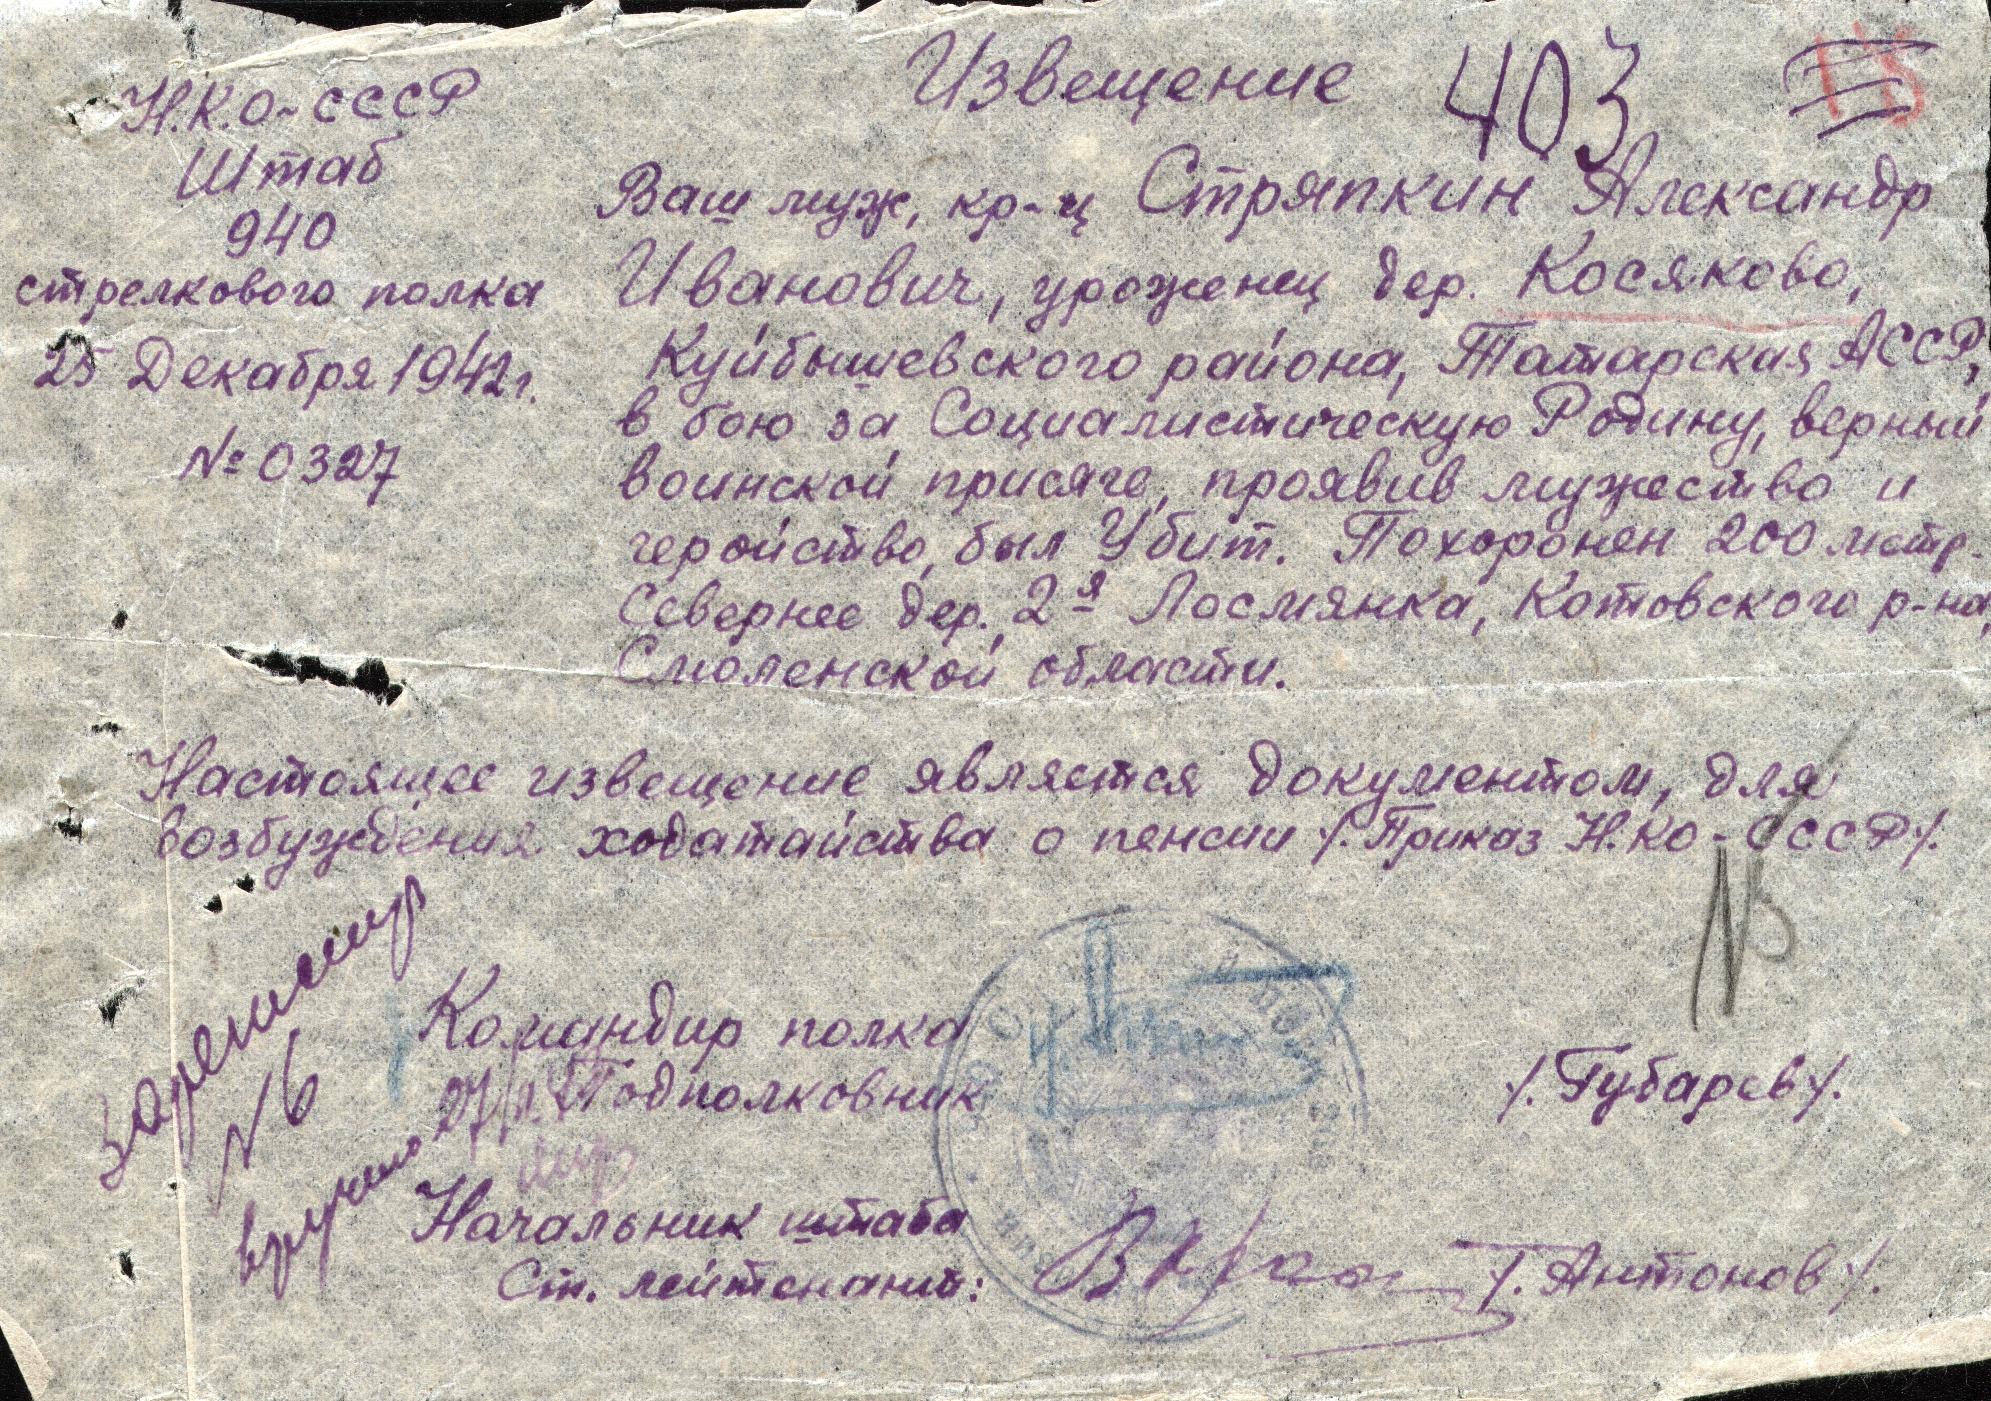 Извещение
403
Н.К.О-СССР
Штаб
940
стрелкового полка
25 Декабря 1942г.
№ 0327
Ваш муж, кр-ц Стряпкин Александр
Иванович, уроженец дер. Косяково,
Куйбышевского района, Татарская АССР,
в бою за Социалистическую Родину, верный
воинской присяге, проявив мужество и
геройство, был Убит. Похоронен 200 метр.
Севернее дер. 2я Лосмянка, Котовского р-на,
Смоленской области.
Настоящее извещение является документом, для
возбуждения ходатайства о пенсии /.Приказ Н.КО-СССР/.
Командир полка
Подполковник
/.Губарев/.
Начальник штаба
Ст. лейтенант:
/.Антонов/.
№6
вручено